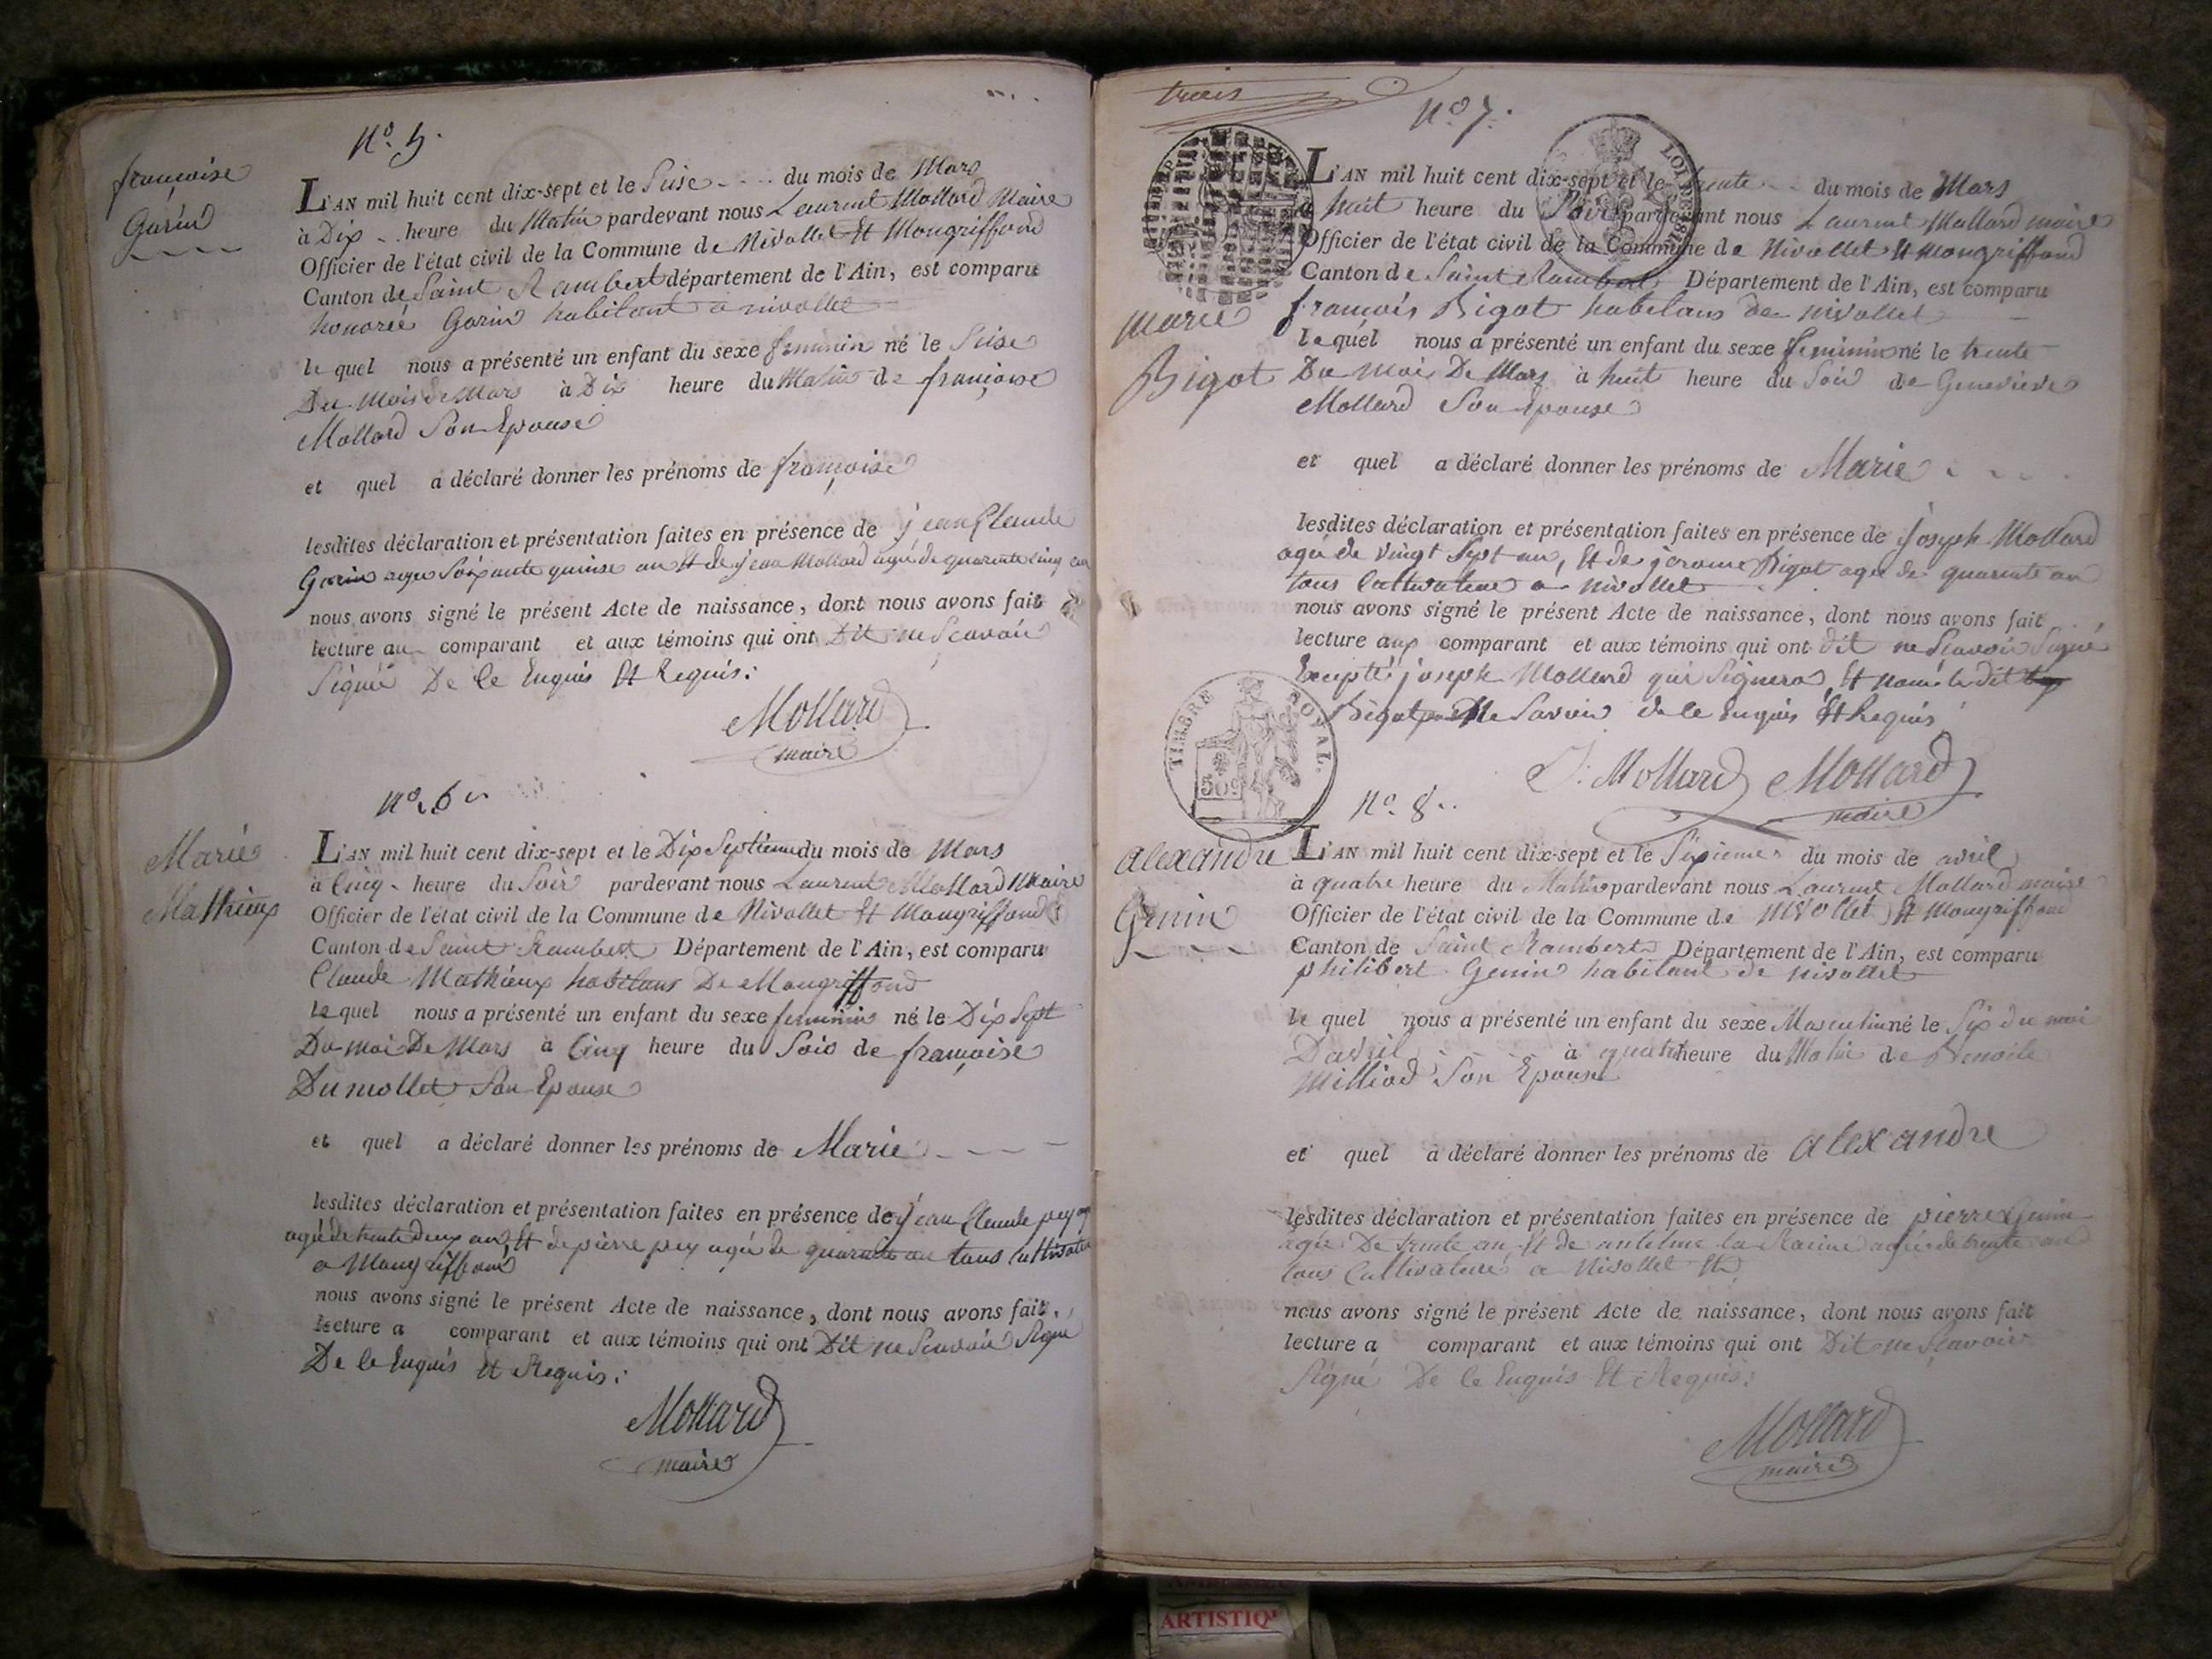 N° 5.
françoise
Garin
L'AN mil huit cent dix-sept et le Seise du mois de Mars
à Dix heure du Matin pardevant nous Laurent Mollard Maire
Officier de l'état civil de la Commune de Nivollet Et Mongriffond
Canton de Saint Rambert département de l'Ain, est comparu
honoréé Garin habitant a nivollet
le quel nous a présenté un enfant du sexe feminin né le Seise
Du Mois de Mars à Dix heure du Matin de françoise
Mollard Son Epouse
et quel a déclaré donner les prénoms de françoise
lesdites déclaration et présentation faites en présence de jean Claude
Garin agee Soixante quinse an Et de jean Mollard agé de quarante cinq an
nous avons signé le présent Acte de naissance, dont nous avons fait
lecture au comparant et aux témoins qui ont Dit ne Scavoir
Signée De Ce Enquis Et Requis:
Mollard
maire
N° 6
Marie
Mathieux
L'AN mil huit cent dix-sept et le Dix Septieme du mois de Mars
à Cinq heure du Soir pardevant nous Laurent Mollard Maire
Officier de l'état civil de la Commune de Nivollet Et Mongriffond
Canton de Saint Rambert Département de l'Ain, est comparu
Claude Mathieux habitans De Mongriffond
le quel nous a présenté un enfant du sexe feminin né le Dix Sept
Du moi De Mars à Cinq heure du Soir de françoise
Dumollet Son Epouse
et quel a déclaré donner les prénoms de Marie
lesdites déclaration et présentation faites en présence de jean Claude pey
agé de trente Deux an, Et de pierre pey agé de quarante an tous Cultivateur
a Mongriffond
nous avons signé le présent Acte de naissance, dont nous avons fait,
lecture a comparant et aux témoins qui ont Dit ne Scavoir Signé
De Ce Enquis Et Requis:
Mollard
maire
trois
N° 7.
LOI DE
Marie
Bigot
L'AN mil huit cent dix-sept et le trente du mois de Mars
à huit heure du Soir pardevant nous Laurent Mollard maire
Officier de l'état civil de la Commune de Nivollet Et Mongriffond
Canton de Saint Rambert Département de l'Ain, est comparu
françois Bigot habitans de nivollet
le quel nous a présenté un enfant du sexe feminin né le trente
Du moi De Mars à huit heure du Soir de Genevieve
Mollard Son Epouse
et quel a déclaré donner les prénoms de Marie
lesdites déclaration et présentation faites en présence de joseph Mollard
agé de Vingt Sept an, Et de jerome Bigot agé de quarante an
tous Cultivateur a nivollet
nous avons signé le présent Acte de naissance, dont nous avons fait
lecture aux comparant et aux témoins qui ont dit ne Scavoir Signé
Excepté joseph Mollard qui Signera, Et le dit
Bigot Ne Savoir de Ce Enquis Et Requis
TIMBRE ROYAL.
50c
J. Mollard Mollard
maire
N° 8
alexandre
Genin
L'AN mil huit cent dix-sept et le Sixieme du mois de avril
à quatre heure du Matin pardevant nous Laurent Mollard maire
Officier de l'état civil de la Commune de Nivollet Et Mongriffond
Canton de Saint Rambert Département de l'Ain, est comparu
philibert Genin habitant de nivollet
le quel nous a présenté un enfant du sexe Masculin né le Six du moi
Davril à quatre heure du Matin de Benoite
Milliod Son Epouse
et quel a déclaré donner les prénoms de alexandre
lesdites déclaration et présentation faites en présence de pierre Genin
agée De trente an Et de antelme la Racine agée de trente an
tous Cultivateur a Nivollet
nous avons signé le présent Acte de naissance, dont nous avons fait
lecture a comparant et aux témoins qui ont Dit ne Scavoir
Signé De Ce Enquis Et Requis:
Mollard
maire
ARTISTIQ